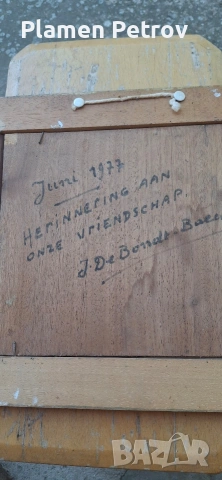 Plamen Petrov
Juni 1977
HERINNERING AAN
ONZE VRIENDSCHAP.
J. De Bondt
bazar.bg